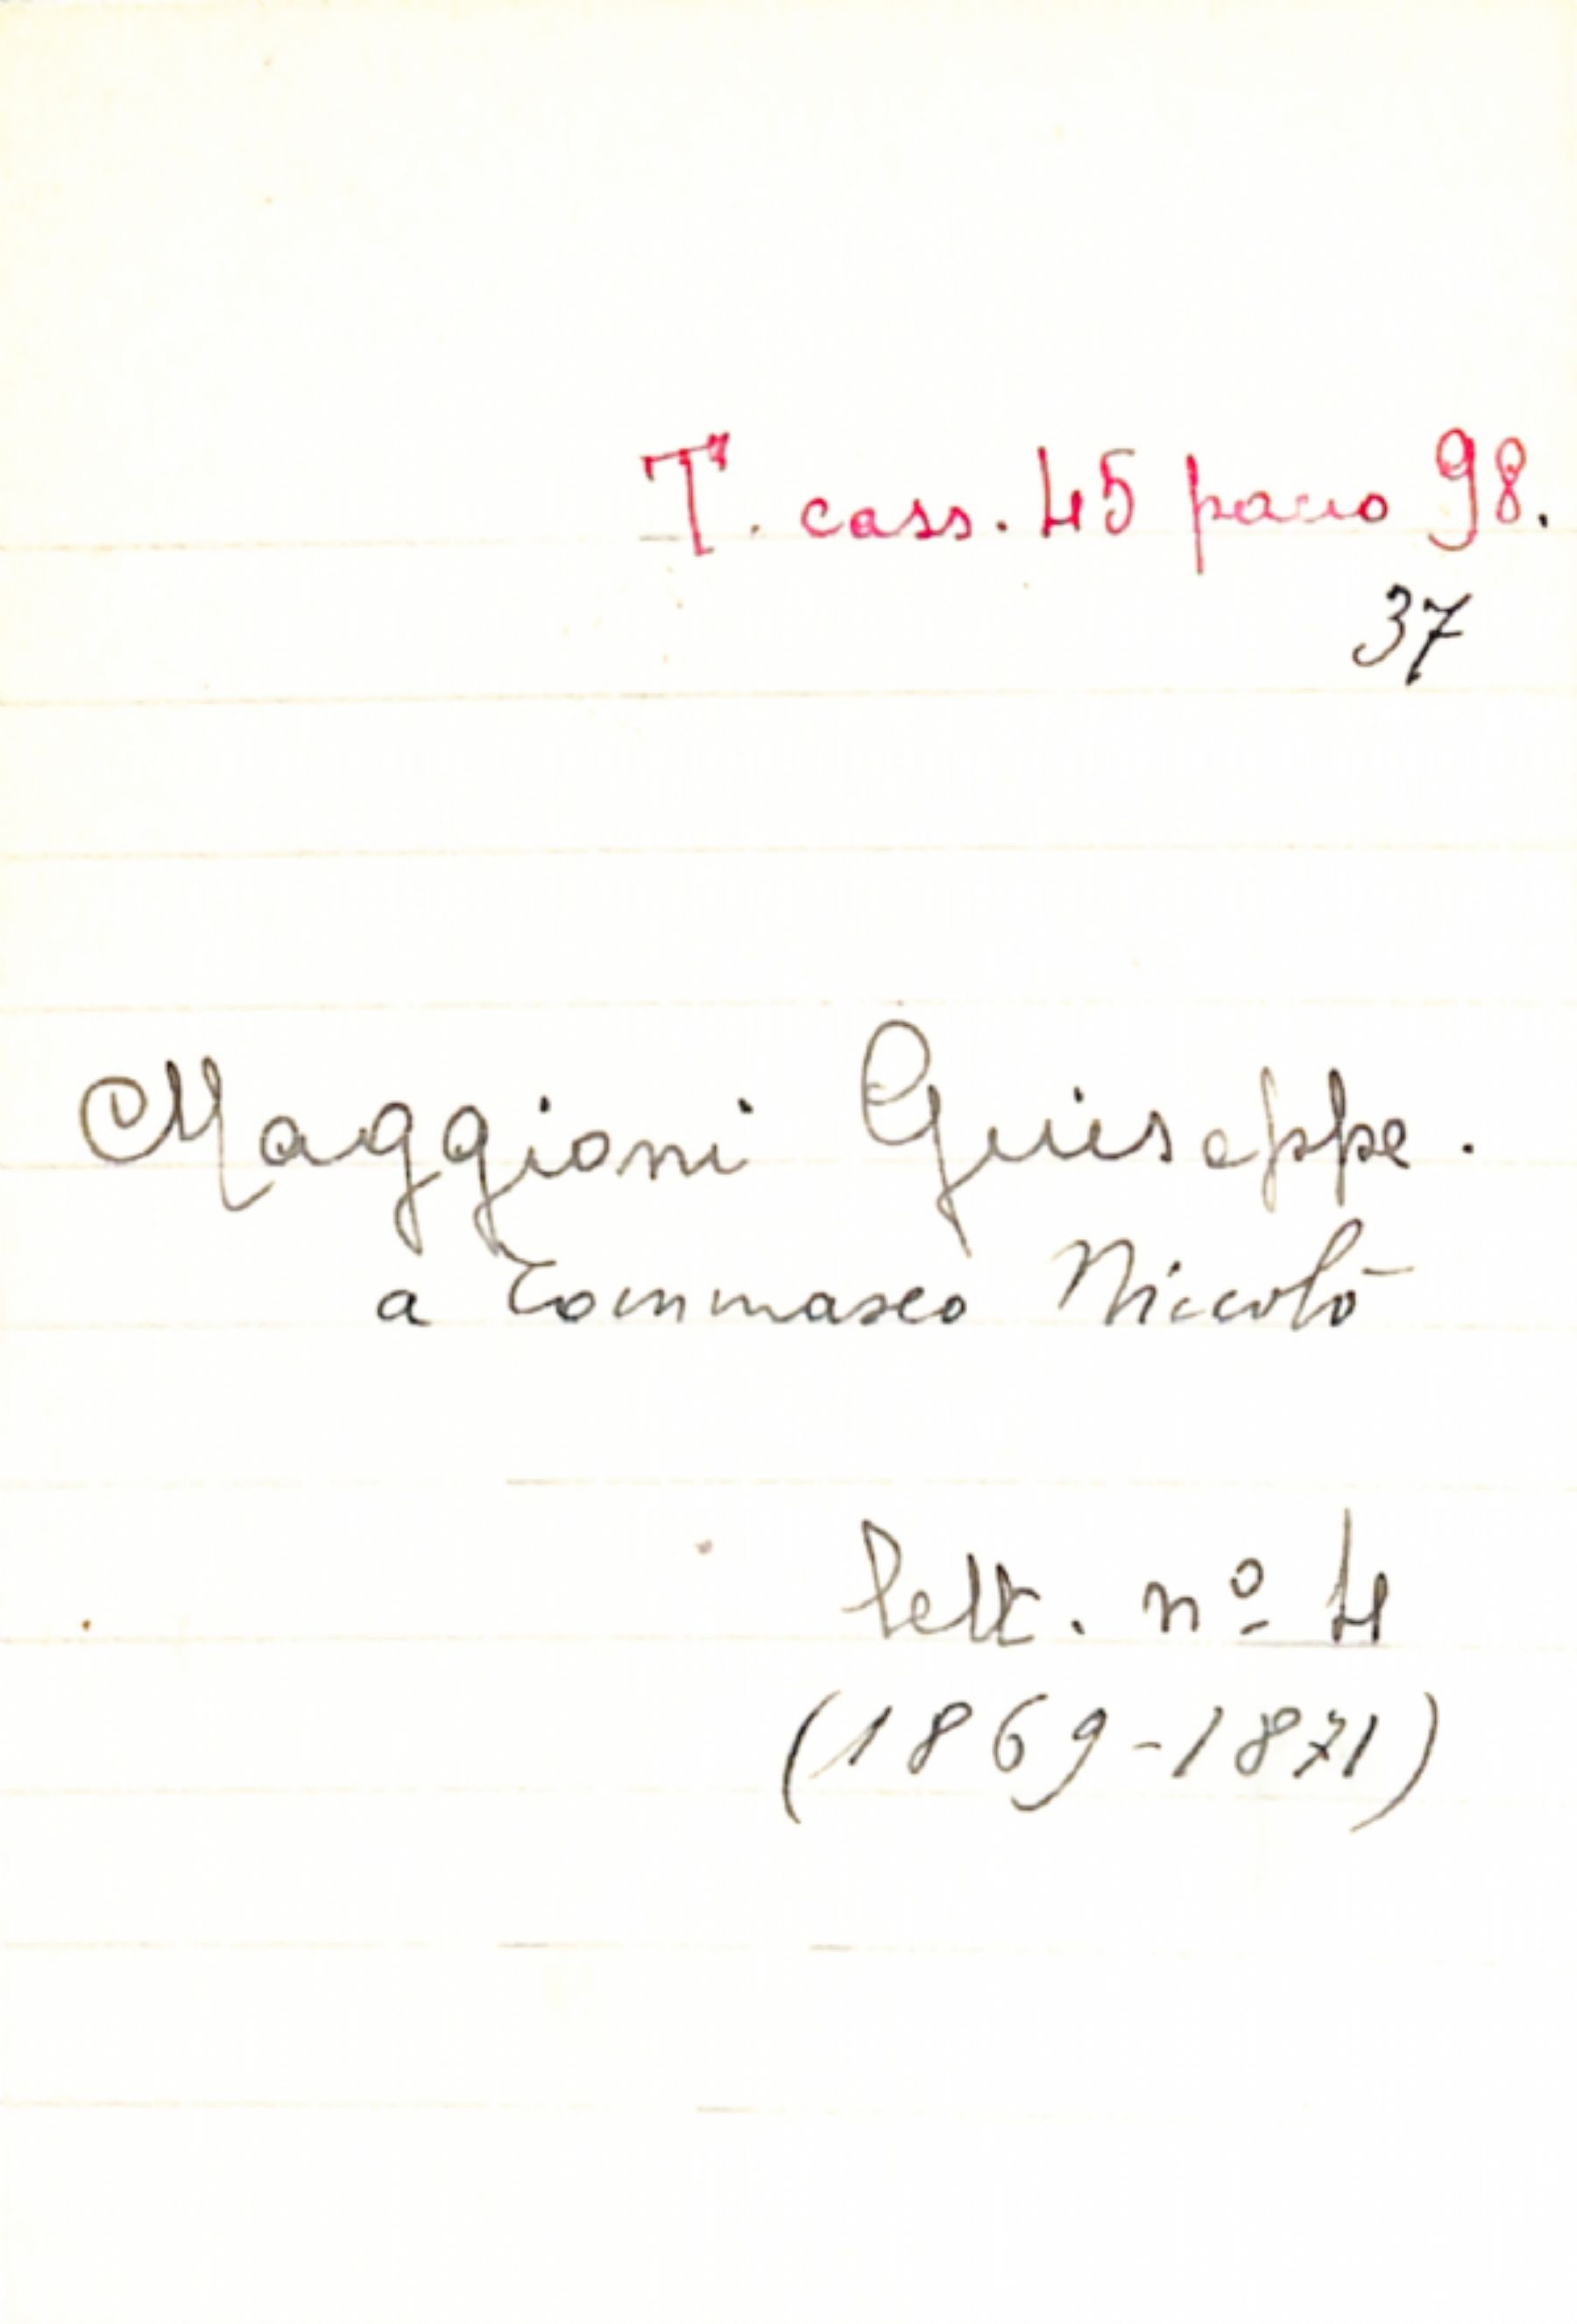 T. cass. 45 pacco 98.
37
Maggioni Giuseppe.
a Tommaseo Niccolò
lett. nº 4
(1869-1871)